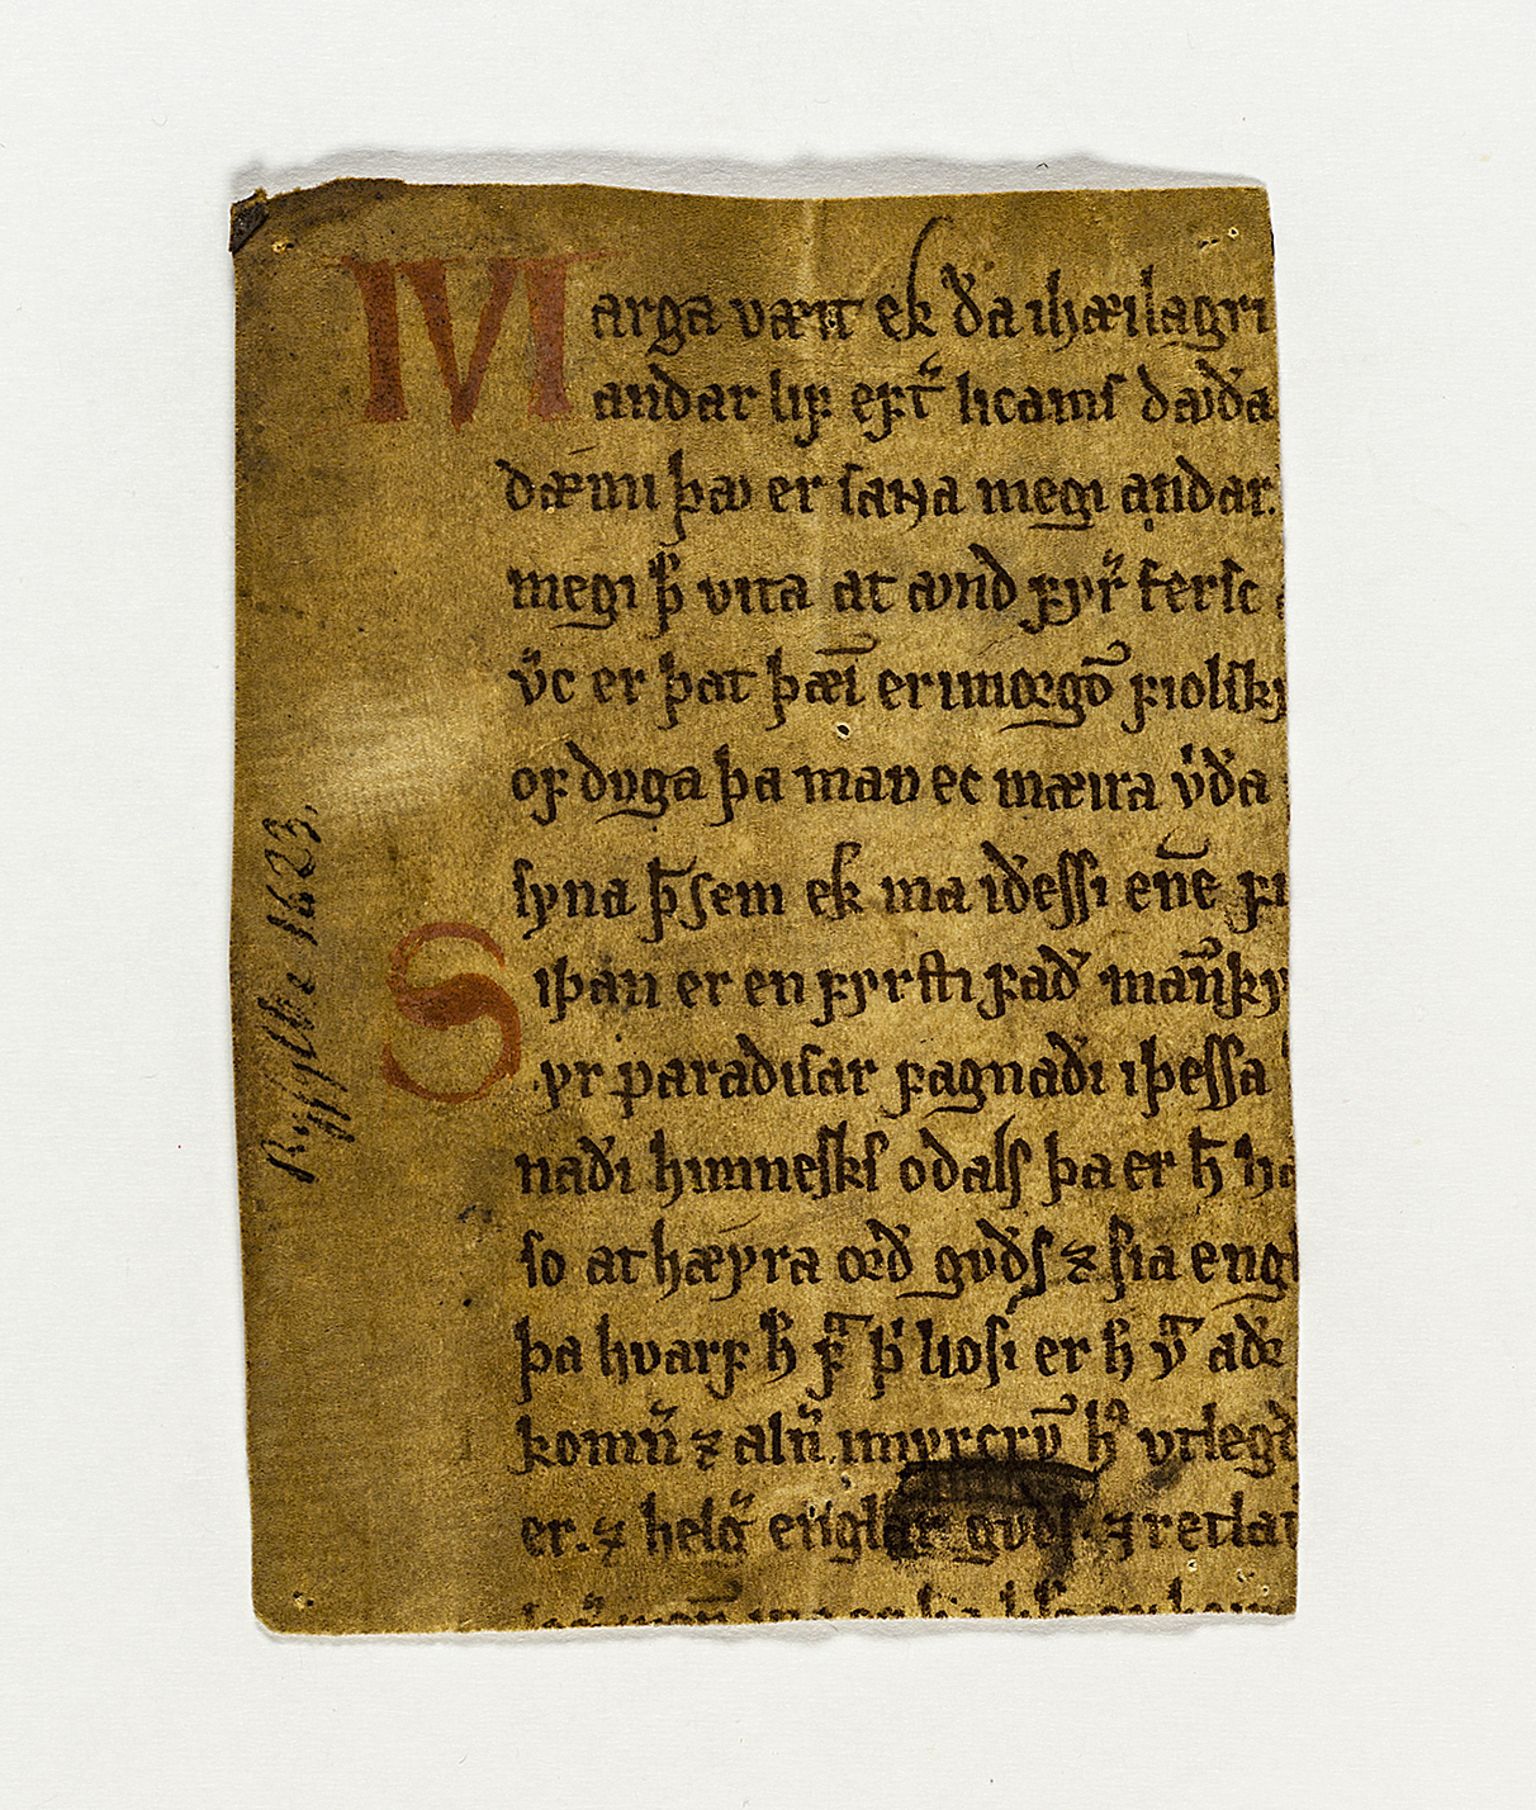 Marga væit ek v̾ða i hæilagri
andar lif eft̾ licams dauða
dæmi þau er sana megi andar.
megi þ̾ vita at aund fyr̾ fersc
v̾c er þat þæī er i morgō fiolsky
of duga þa man ec mæira v̾ða
syna þ̄ sem ek ma i ðessi eṉe fi
Siþan er en fyrsti fað̾ man̄ky
yr paradisar fagnaði i þessa
naði himnesks odals þa er h̄ ha
so at hæyra orð guðs ⁊ sia eng
þa hvarf h̄ f̾ þ̾ liosi er h̄ v̾ aðr
komn̾ ⁊ aln̾ i myrcrū h̾ utlegð
er. ⁊ helg̾ englar guðs. ⁊ retlat
Ryfylke 1623.